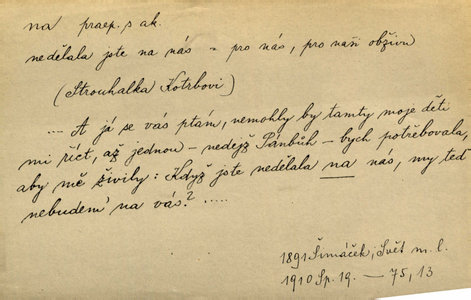 na praep. s ak.
nedělala jste na nás = pro nás, pro naši obživu
(Strouhalka Kotrbovi)
.... A já se vás ptám, nemohly by tamty moje děti
mi říct, až jednou – nedejž Pánbůh – bych potřebovala,
aby mě živily: Když jste nedělala na nás, my teď
nebudem na vás? .....
1891 Šimáček, Svět m. l.
1910 Sp. 19. — 75, 13